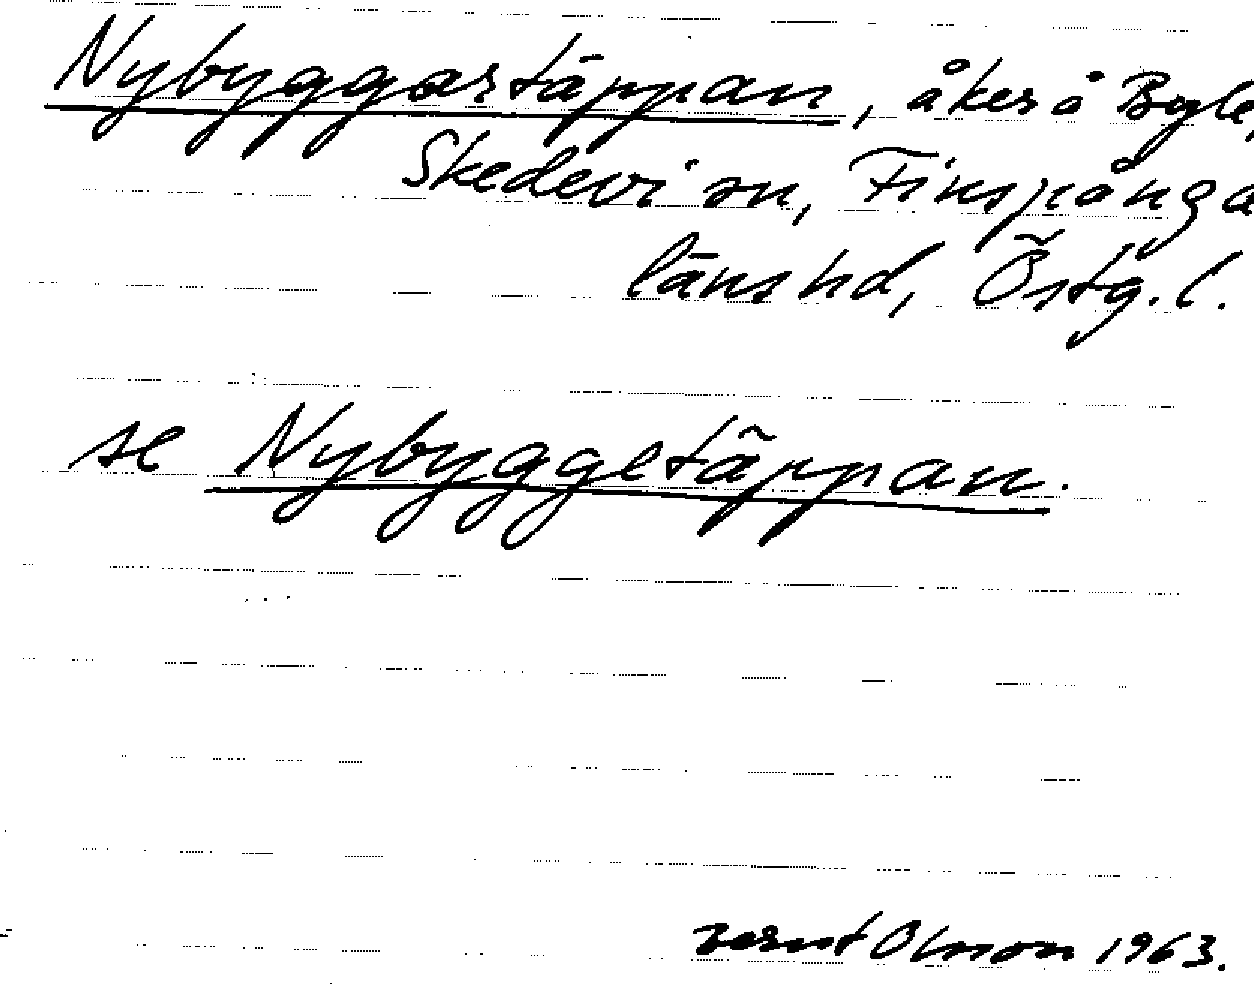 Nybyggartäppan, åker å Byle,
Skedevi sn, Finspånga
länshd, Östg. l.
se Nybyggetäppan.
Bernt Olsson 1963.